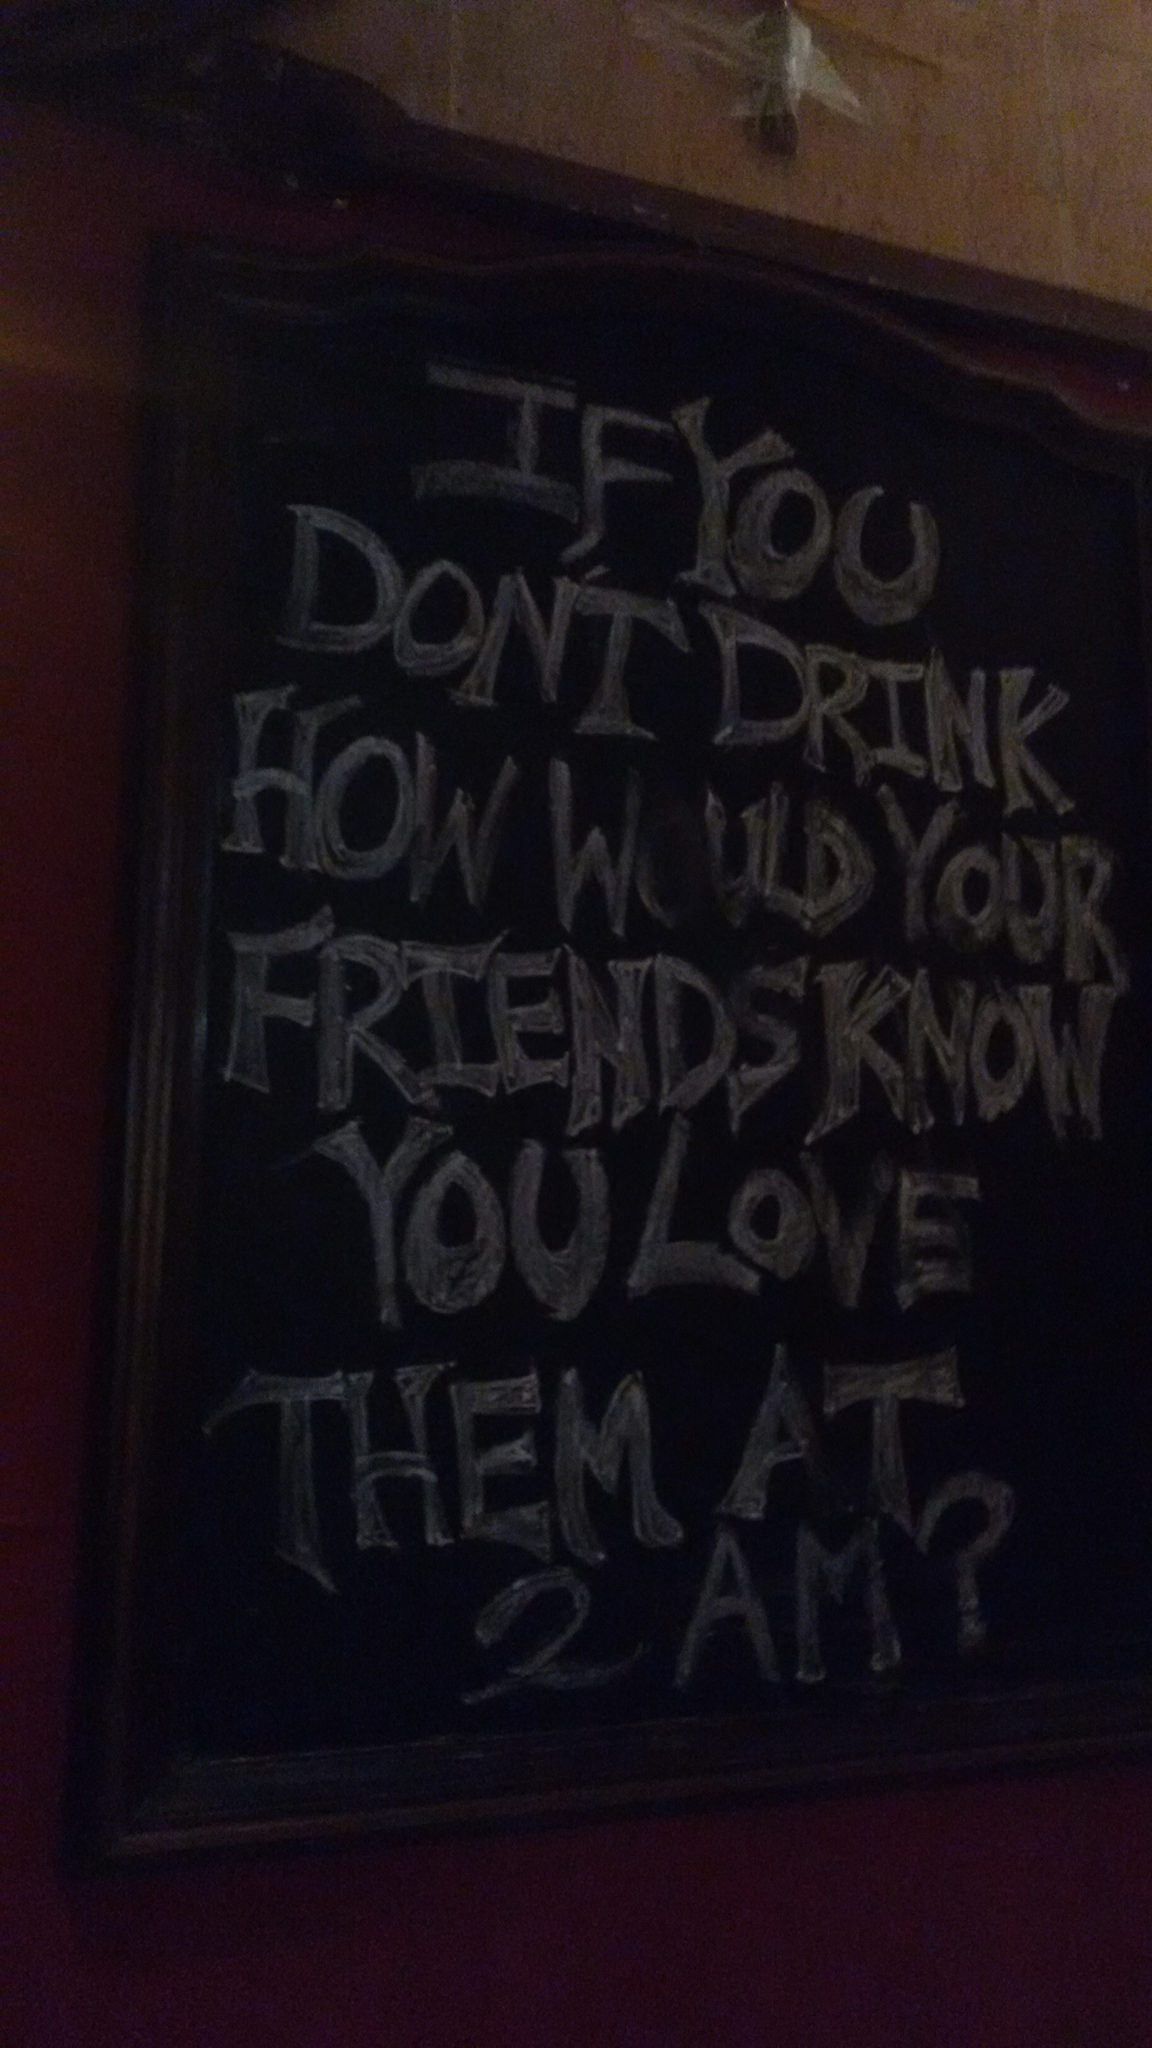 IF YOU
DON'T DRINK
HOW WOULD YOUR
FRIENDS KNOW
YOU LOVE
THEM AT
2 AM?